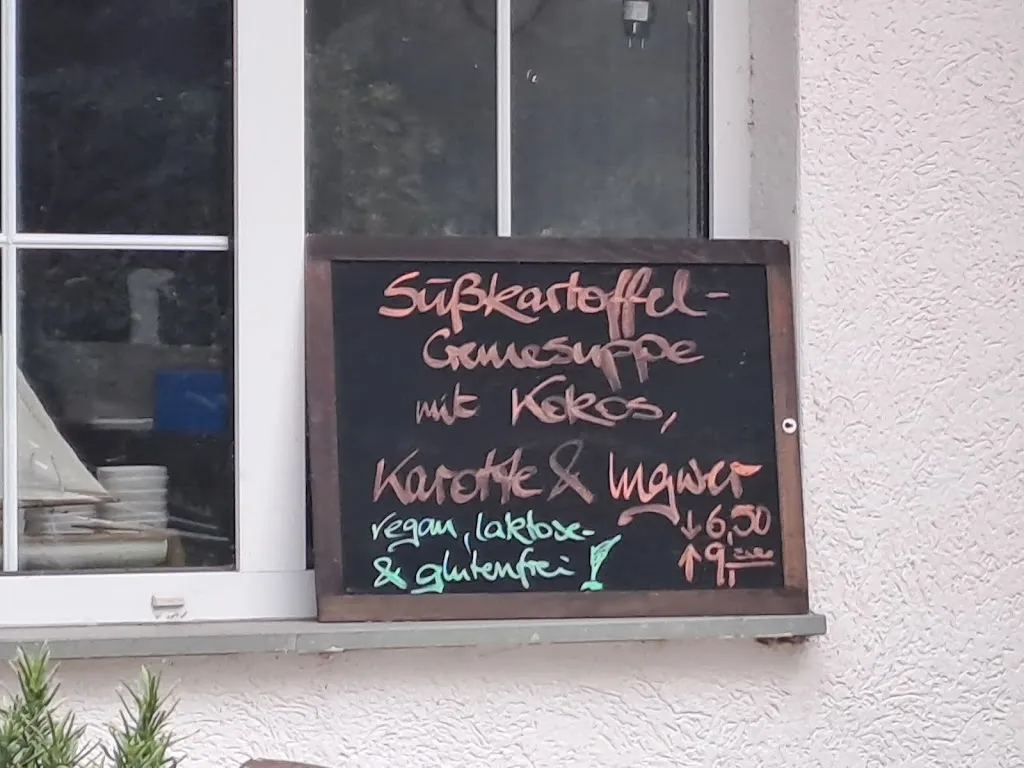 Süßkartoffel-
Cremesuppe
mit Kokos,
Karotte & Ingwer
vegan, laktose-
& glutenfrei!
↓ 6,50
↑ 9,-